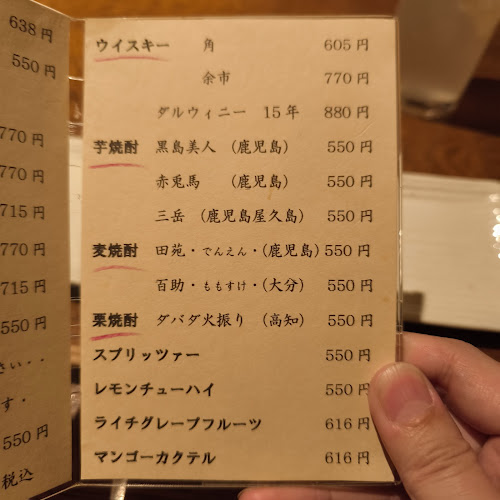 638 円
550 円
770 円
770 円
715 円
770 円
715 円
550 円
さい・・
す・
550 円
税込
ウイスキー 角 605 円
余市 770 円
ダルウィニー 15 年 880 円
芋焼酎 黒島美人 (鹿児島) 550 円
赤兎馬 (鹿児島) 550 円
三岳 (鹿児島屋久島) 550 円
麦焼酎 田苑・でんえん・(鹿児島) 550 円
百助・ももすけ・(大分) 550 円
栗焼酎 ダバダ火振り (高知) 550 円
スプリッツァー 550 円
レモンチューハイ 550 円
ライチグレープフルーツ 616 円
マンゴーカクテル 616 円